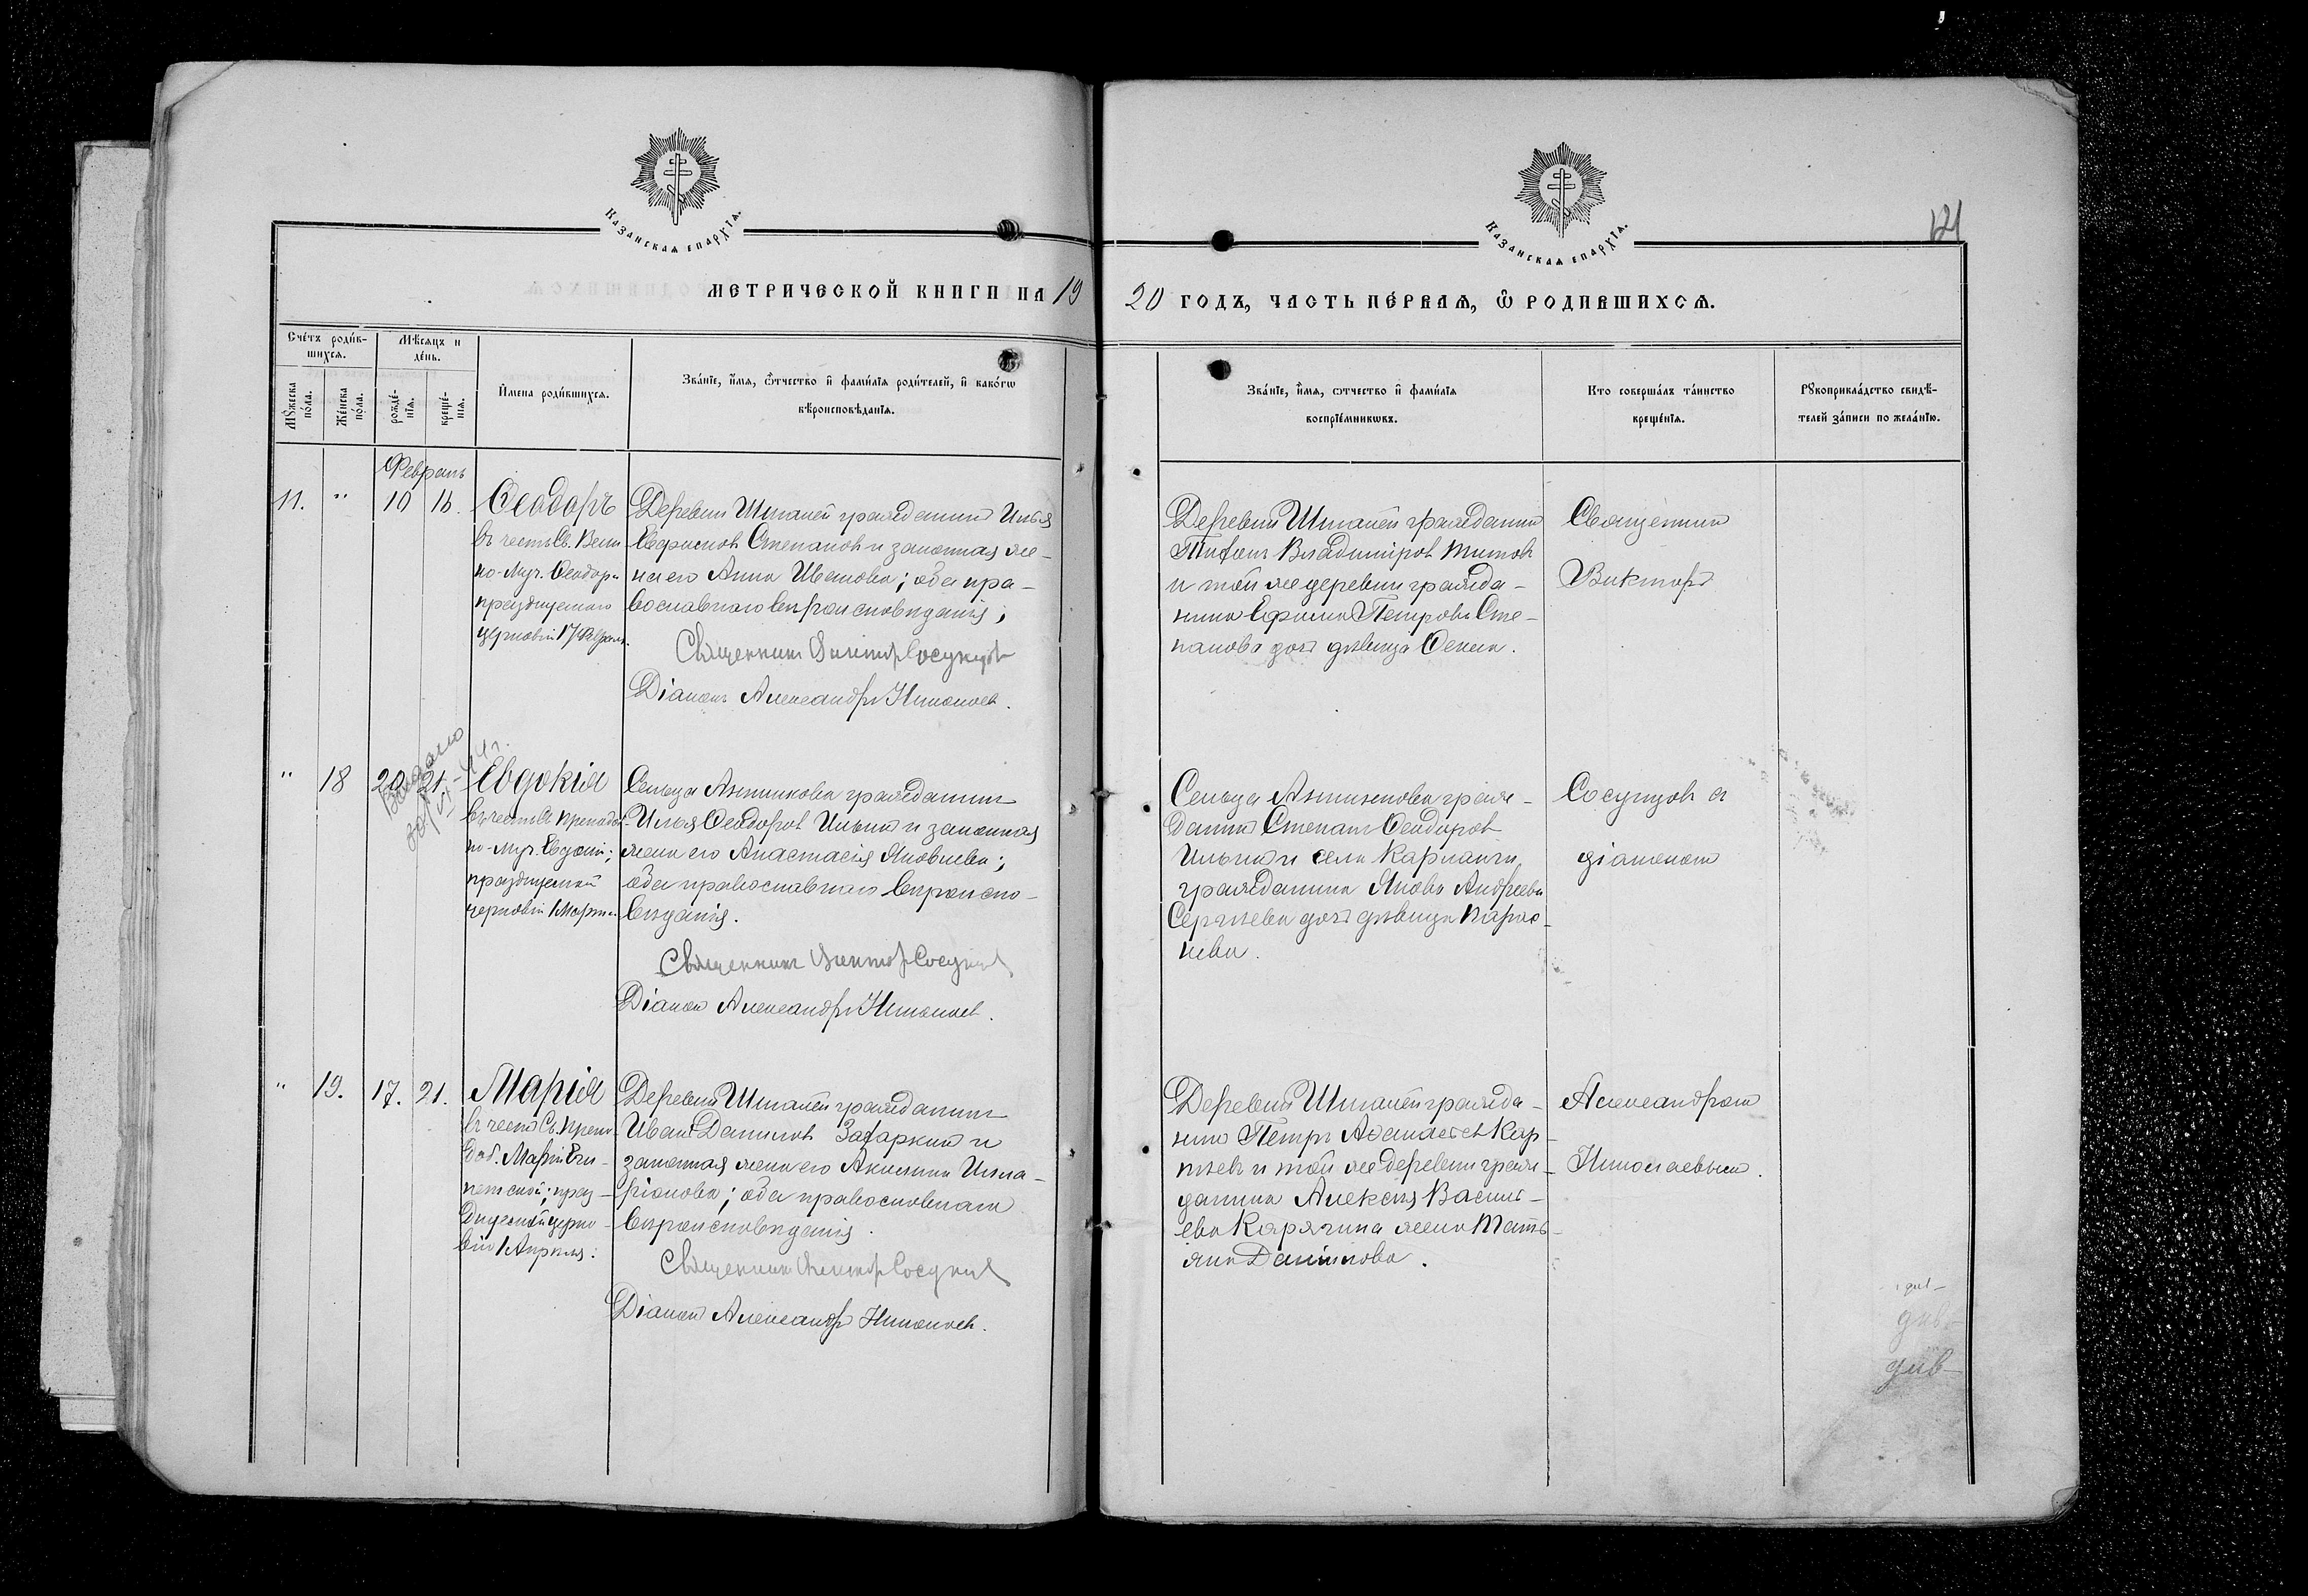 Казанская епархїя.
Казанская епархїя.
121
МЕТРИЧЕСКОЙ КНИГИ НА 19
20 ГОДЪ, ЧАСТЬ ПЕ́РВАЯ, Ѡ РОДИВШИХСЯ.
Сче́тъ роди́вшихся.
Мѣсяцъ и де́нь.
Мꙋ́жеска по́ла.
Же́нска по́ла.
рожде́нїя.
креще́нїя.
И҆мена роди́вшихся.
Зва́нїе, и҆́мя, ѻ҆́тчество и҆ фами́лїя роди́телей, и҆ како́гѡ
вѣроисповѣ́данїя.
Зва́нїе, и҆́мя, ѻ҆тчество и҆ фами́лїя
воспрїе́мникѡвъ.
Кто соверша́лъ та́инство
креще́нїя.
Рꙋкоприкла́дство свидѣ́-
телей за́писи по жела́нїю.
Февраль
11.
"
10
16.
Ѳеодоръ
въ честь Св. Вели
ко-Муч. Ѳеодора
празднуемаго
церковію 17 Февраля.
Деревни Шигалей гражданинъ Илья
Ефимовъ Степановъ и законная же-
на его Анна Иванова; оба пра-
вославнаго вѣроисповѣданія;
Священникъ Викторъ Сосунцовъ
Діаконъ Александръ Николаев.
Деревни Шигалей гражданинъ
Владиміровъ Титовъ
и той же деревни гражда-
нина Ефима Петрова Сте-
панова дочь дѣвица Ѳекла.
Священникъ
Викторъ
"
18
20
21.
Выдано
Евдокія
въ честь Св. Преподоб-
но-Муч. Евдокіи;
празднуемой
церковію 1 Марта.
Сельца гражданинъ
Илья Ѳеодоровъ Ильинъ и законная
жена его Анастасія Яковлева;
оба православнаго вѣроиспо-
вѣданія.
Священникъ Викторъ Сосунцовъ
Діаконъ Александръ Николаев.
Сельца граж-
данинъ Степанъ Ѳеодоровъ
Ильинъ и села
гражданина Якова Андреева
Сергѣева дочь дѣвица Парас-
кева.
Сосунцовъ съ
діакономъ
"
19.
17.
21.
Марія
въ честь Св. Препо
доб. Маріи Еги-
петской; праз-
днуемой церко-
вію 1 Апрѣля.
Деревни Шигалей гражданинъ
Иванъ Даниловъ Захаркинъ и
законная жена его Акилина Илла-
ріонова; оба православнаго
вѣроисповѣданія.
Священникъ Викторъ Сосунцовъ
Діаконъ Александръ Николаев.
Деревни Шигалей гражда-
нинъ Петръ Аѳанасьевъ Кар-
и той же деревни граж-
данина Алексѣя Василь-
ева Карягина жена Тать-
яна Данилова.
Александромъ
Николаевымъ.
див-
див-